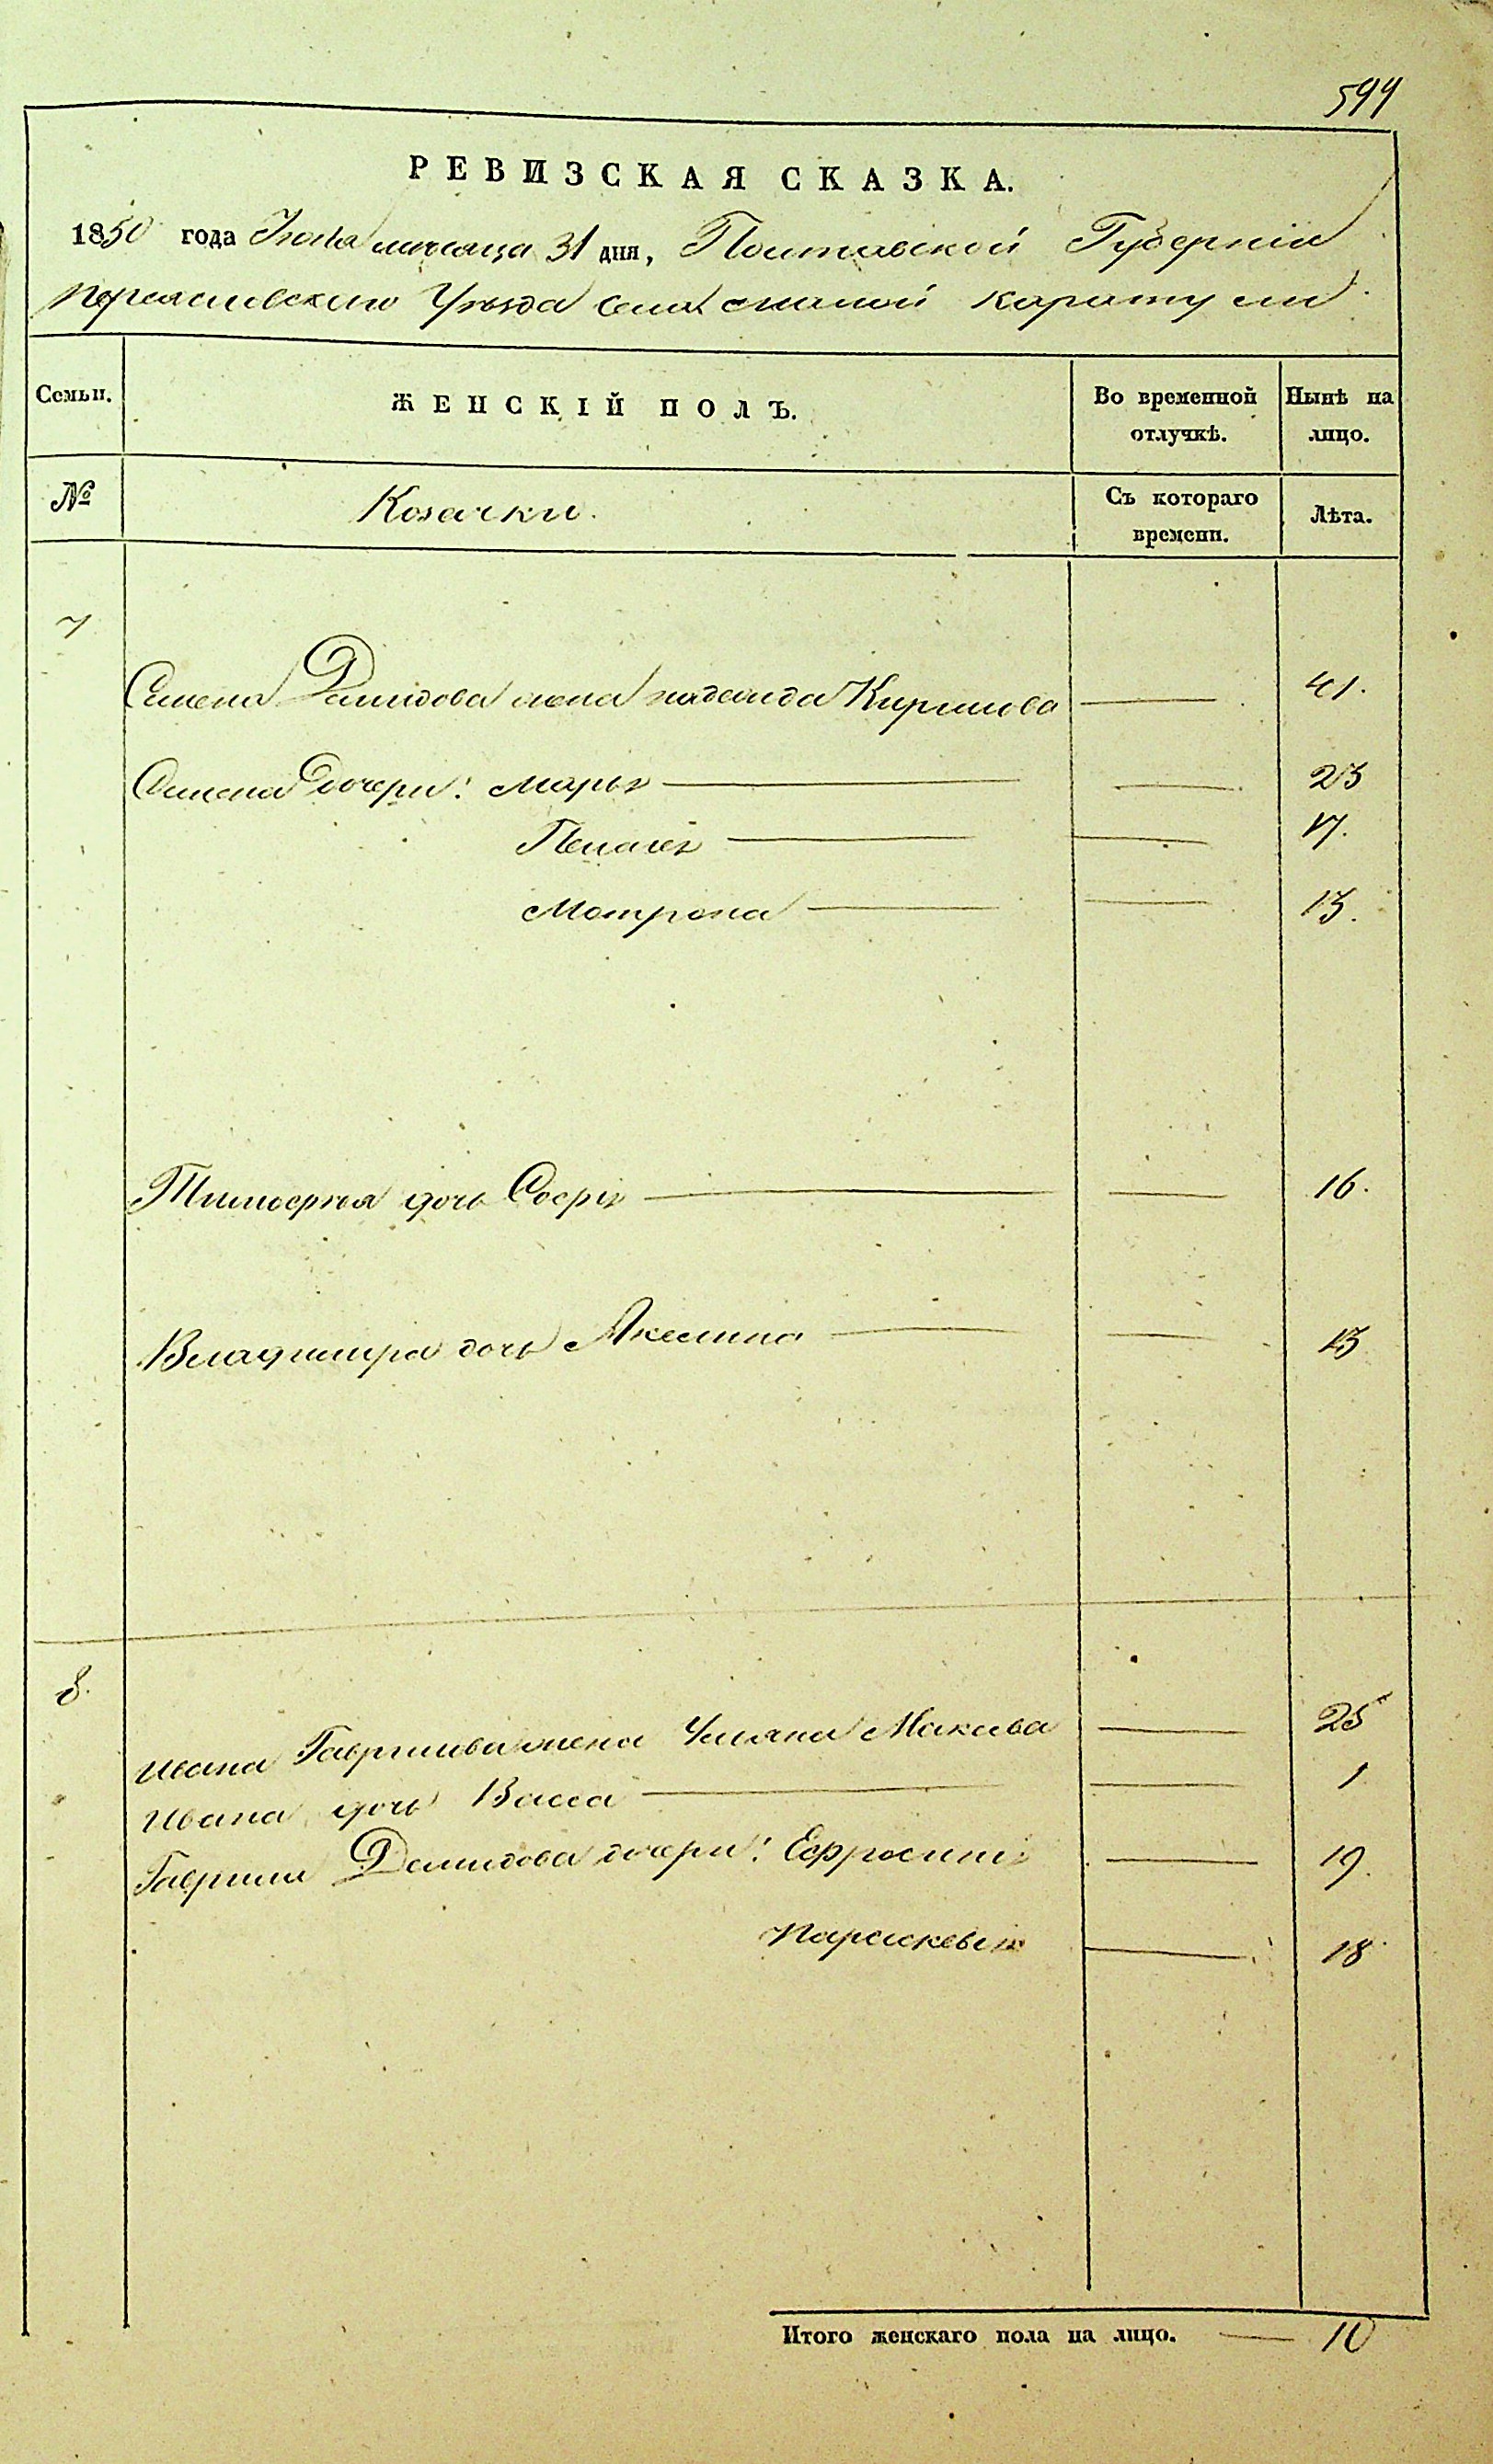 599
РЕВИЗСКАЯ СКАЗКА.
1850 года Июля месяца 31 дня, Полтавской Губерніи
Переяславского Уѣзда Села малой каратули
Семьи.
ЖЕНСКІЙ ПОЛЪ.
Во временной отлучкѣ.
Нынѣ на лицо.
№
Козачки.
Съ котораго времени.
Лѣта.
7
Семена Демидова жена надежда Кирилова — 41.
Семена дочери: Марья — 23
Пелагея — 17.
Мотрона — 13.
Тимофея дочь Софія — 16.
Владимира дочь Акелина — 13
8.
Ивана Гаврилова жена Уляна Макова — 25
Ивана дочь Васса — 1
Гаврила Демидова дочери: Ефросинія — 19.
Параскевія — 18
Итого женскаго пола на лицо. — 10